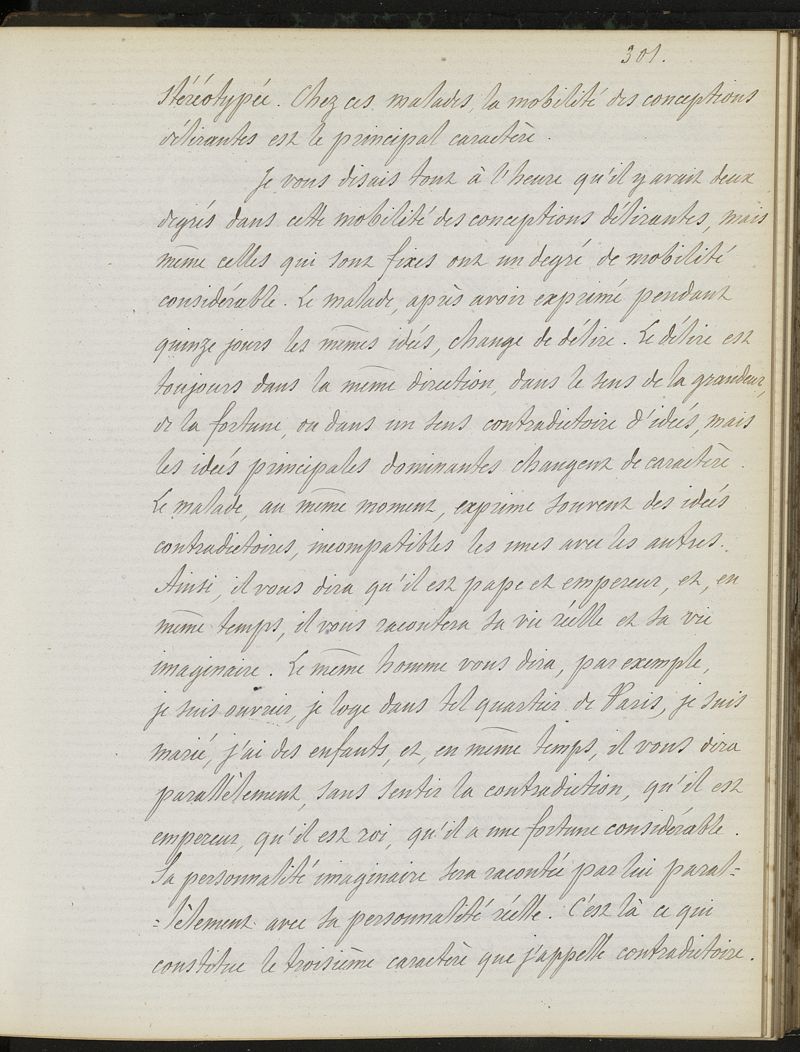 301.
stéréotypée. Chez ces malades, la mobilité des conceptions
délirantes est le principal caractère.
Je vous disais tout à l'heure qu'il y avait deux
degrés dans cette mobilité des conceptions délirantes, mais
même celles qui sont fixes ont un degré de mobilité
considérable. Le malade, après avoir exprimé pendant
quinze jours les mêmes idées, change de délire. Le délire est
toujours dans la même direction, dans le sens de la grandeur,
de la fortune, ou dans un sens contradictoire d'idées, mais
les idées principales dominantes changent de caractère.
Le malade, au même moment, exprime souvent des idées
contradictoires, incompatibles les unes avec les autres.
Ainsi, il vous dira qu'il est pape et empereur, et, en
même temps, il vous racontera sa vie réelle et sa vie
imaginaire. Le même homme vous dira, par exemple,
je suis ouvrier, je loge dans tel quartier de Paris, je suis
marié, j'ai des enfants, et, en même temps, il vous dira
parallèlement, sans sentir la contradiction, qu'il est
empereur, qu'il est roi, qu'il a une fortune considérable.
Sa personnalité imaginaire sera racontée par lui paral=
=lèlement avec sa personnalité réelle. C'est là ce qui
constitue le troisième caractère que j'appelle contradictoire.